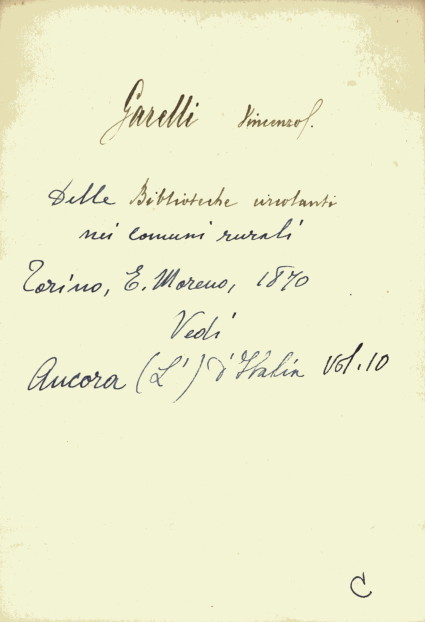 Garelli Vincenzo.
Delle Biblioteche circolanti
nei comuni rurali
Torino, E. Moreno, 1870
Vedi
Ancora (L') d'Italia Vol. 10
C